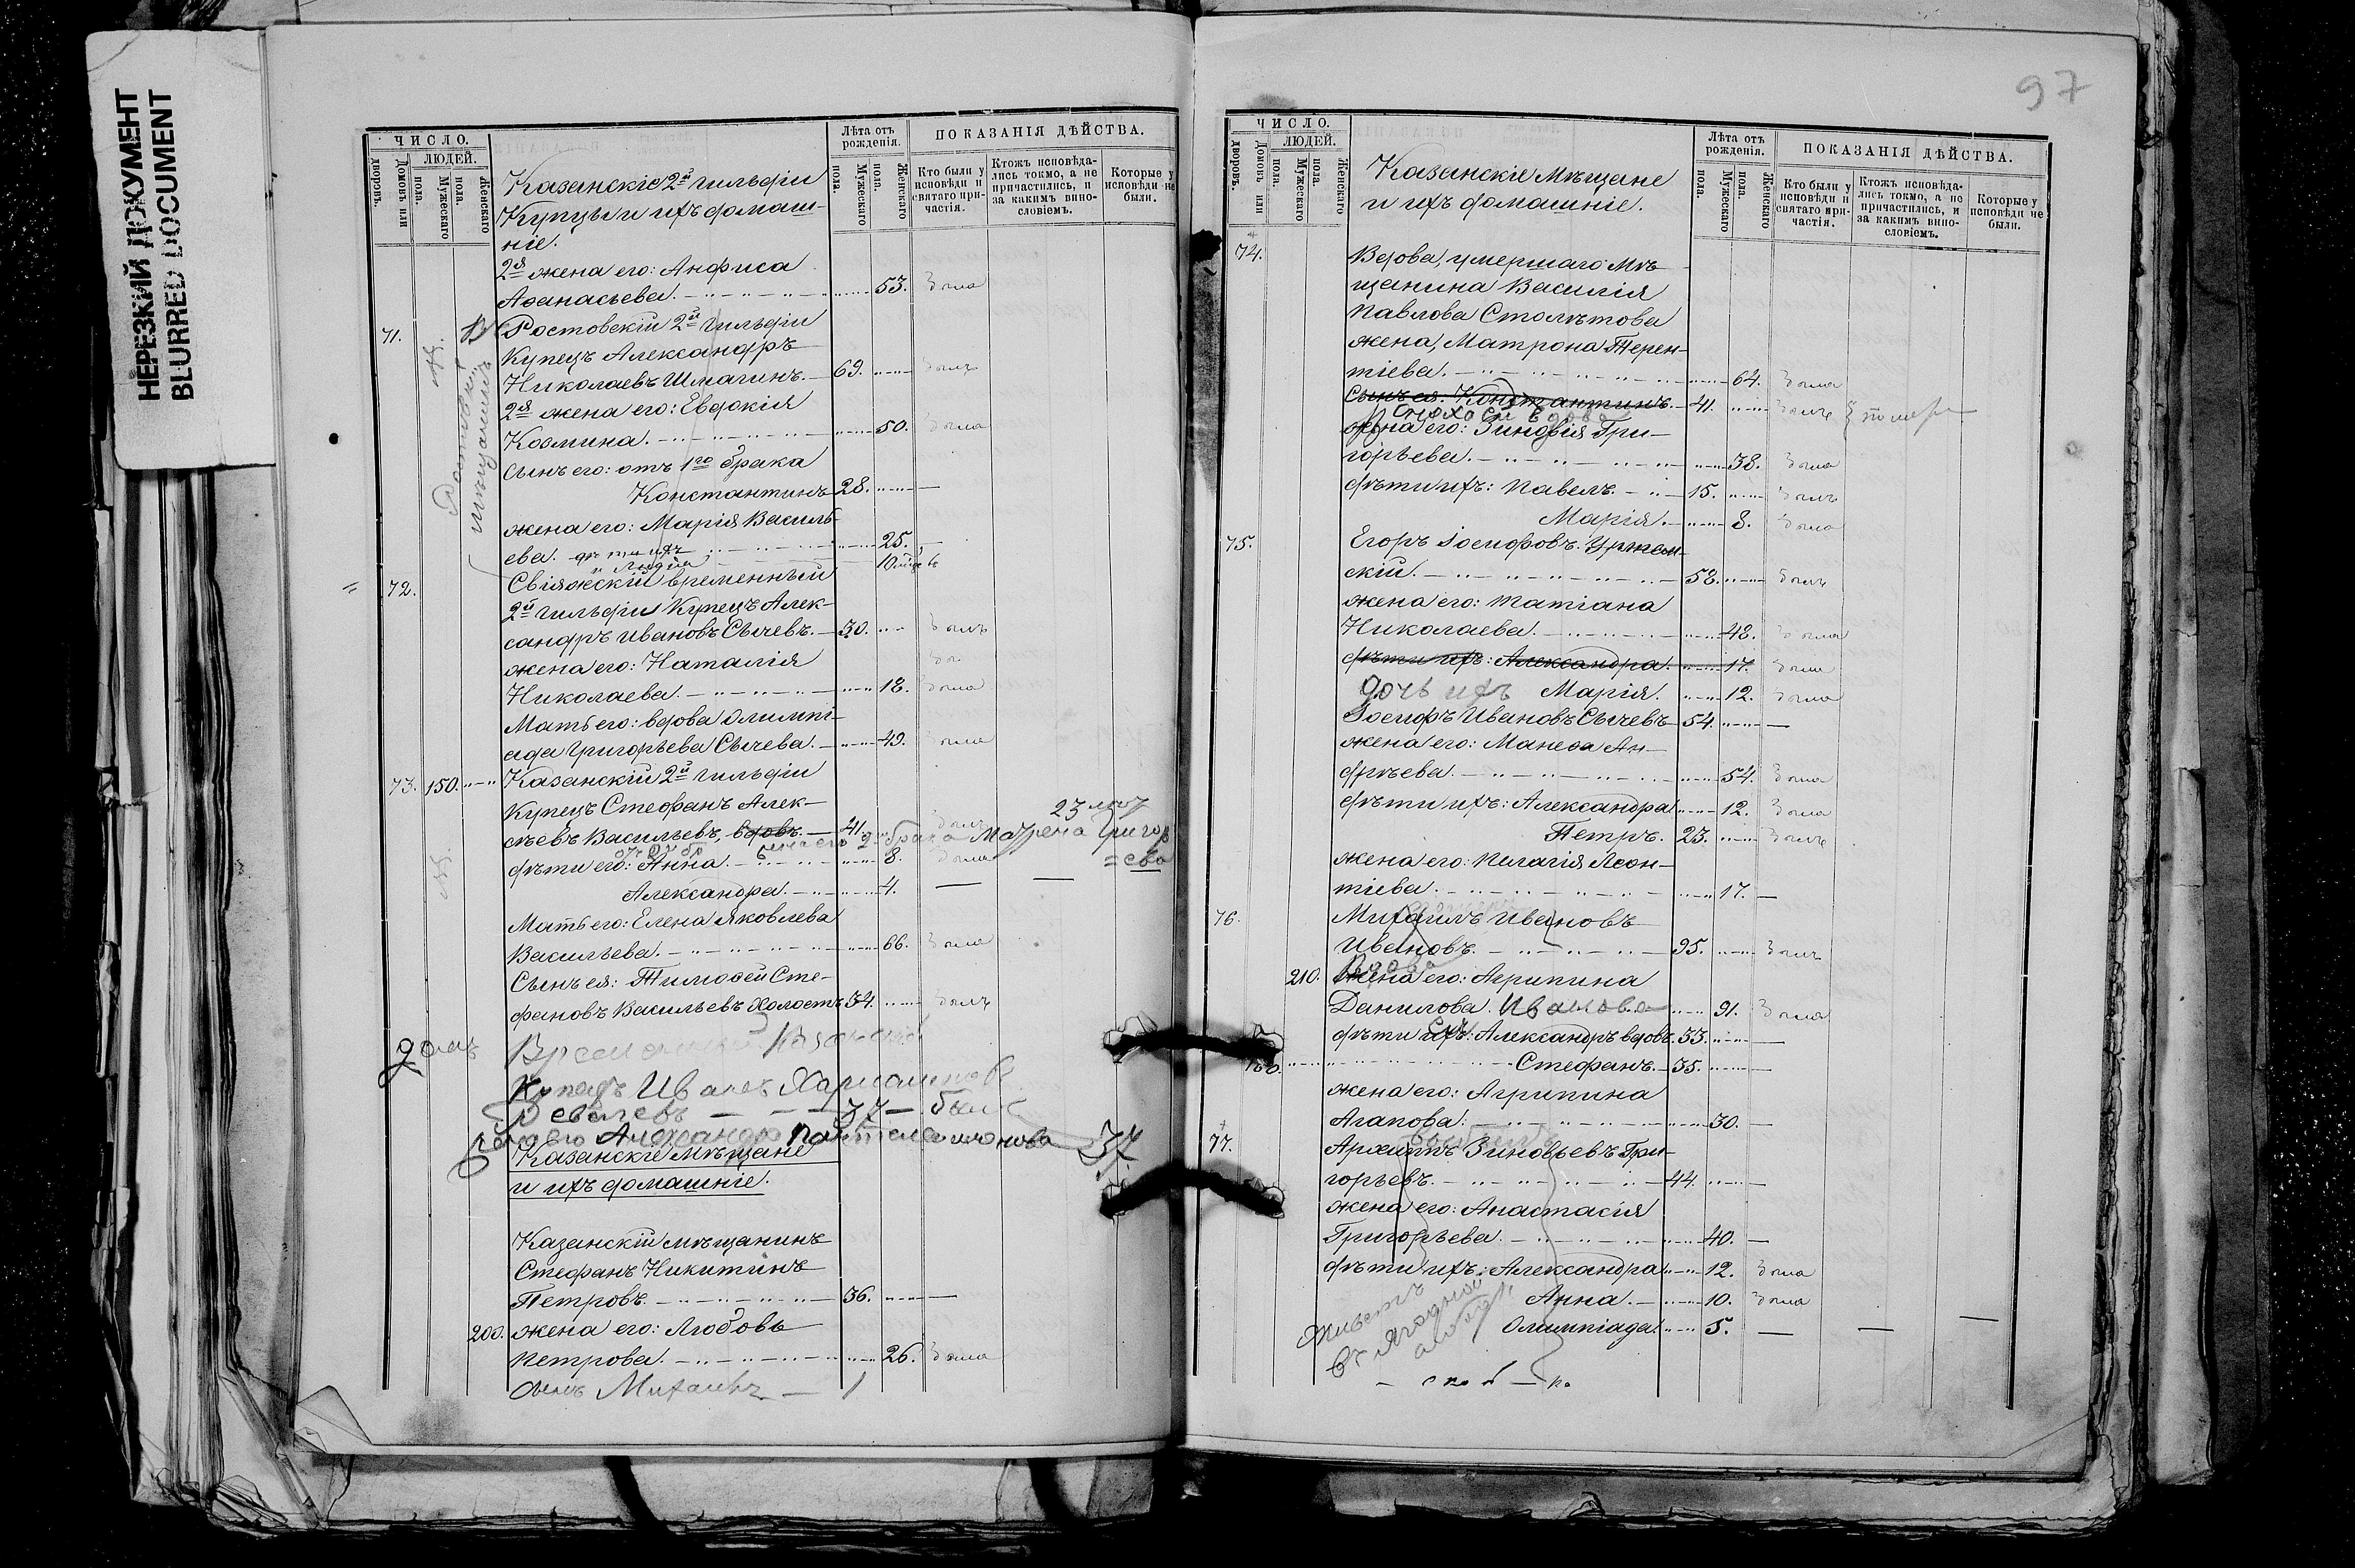 НЕРЕЗКИЙ ДОКУМЕНТ
BLURRED DOCUMENT
ЧИСЛО.
ЛЮДЕЙ.
Домовъ или дворовъ.
Мужескаго пола.
Женскаго пола.
Казанскіе 2й гильдіи
Купцы и ихъ домаш-
ніе.
Лѣта отъ рожденія.
Мужескаго пола.
Женскаго пола.
ПОКАЗАНІЯ ДѢЙСТВА.
Кто были у исповѣди и святаго причастія.
Ктожъ исповѣдались токмо, а не причастились, и за какимъ винословіемъ.
Которые у исповѣди не были.
2я жена его: Анфиса
Аѳанасьева. 53. была
71. Ростовскій 2й гильдіи
Купецъ Александръ
Николаевъ Шмагинъ. 69. былъ
2я жена его: Евдокія
Козмина. 50. была
сынъ его: отъ 1го брака
Константинъ 28. —
жена его: Марія Василь-
ева. дѣти ихъ 25. —
Лидія 10 мѣс
72. Свіяжскій временный
2й гильдіи Купецъ Алек-
сандръ Ивановъ Сычевъ. 30. былъ
жена его: Наталія
Николаева. 18. была
Мать его: вдова Олимпі-
ада Григорьева Сычева. 49. была
73. 150. Казанскій 2й гильдіи
Купецъ Стефанъ Алек-
сѣевъ Васильевъ, вдовъ. 41. былъ
23 лѣт
жена его 2 брака Матрена Григор
=ева
дѣти его: Анна. 8. была
Александра. 4. — —
Мать его: Елена Яковлева
Васильева. 66. была
Сынъ ея: Тимоѳей Сте-
фановъ Васильевъ холостъ 34. былъ
домъ Временный Казанскій
Купецъ Иванъ
37 — был
жена его Александра Пантелеимонова 37
Казанскіе Мѣщане
и ихъ домашніе.
Казанскій мѣщанинъ
Стефанъ Никитинъ
Петровъ. 36. —
200. жена его: Любовь
Петрова. 26. была
сынъ Михаилъ — 1
97
ЧИСЛО.
ЛЮДЕЙ.
Домовъ или дворовъ.
Мужескаго пола.
Женскаго пола.
Казанскіе Мѣщане
и ихъ домашніе.
Лѣта отъ рожденія.
Мужескаго пола.
Женскаго пола.
ПОКАЗАНІЯ ДѢЙСТВА.
Кто были у исповѣди и святаго причастія.
Ктожъ исповѣдались токмо, а не причастились, и за какимъ винословіемъ.
Которые у исповѣди не были.
74. Вдова, умершаго Мѣ-
щанина Василія
Павлова Столѣтова
жена, Матрона Терен-
тіева. 64. была
Сынъ ея. Константинъ. 41. былъ померъ
Сноха ей вдова
жена его: Зиновія Гри-
горьева. 38. была
дѣти ихъ: Павелъ. 15. былъ
Марія. 8. была
75. Егоръ Іосифовъ Уржум-
скій. 58. былъ
жена его: Татіана
Николаева. 48. была
дѣти ихъ: Александра. 17. была
дочь ихъ Марія. 12. была
Іосифъ Ивановъ Сычевъ 54. —
жена его: Манефа Ан-
дрѣева. 54. была
дѣти ихъ: Александра 12. была
Петръ. 23. былъ
жена его: Пелагія Леон-
тіева. 17. —
76. Михаилъ Ивановъ
Ивановъ. 95. былъ
вдова
210. жена его: Агрипина
Данилова. Иванова 91. была
дѣти ихъ: Александръ вдовъ. 53. —
160. Стефанъ. 35. —
жена его: Агрипина
Агапова. 30. —
77. Архиппъ Зиновьевъ Гри-
горьевъ. 44. —
жена его: Анастасія
Григорьева. 40. —
дѣти ихъ: Александра 12. была
Анна. 10. была
Олимпіада. 5. — — —
Живетъ
въ Ягодной
слобод